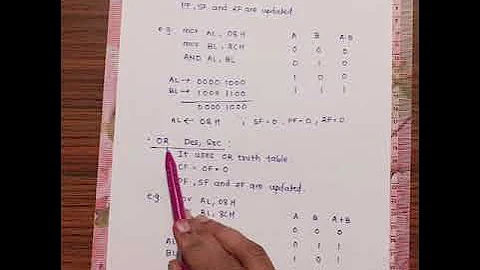 PF, SF and ZF are updated
e.g. MOV AL, 08H A B A·B
MOV BL, 8CH 0 0 0
AND AL, BL 0 1 0
1 0 0
AL → 0000 1000 1 1 1
BL → 1000 1100
0000 1000
AL ← 08H ; SF = 0, PF = 0, ZF = 0
OR Des, Src :
It uses OR truth table
CF = OF = 0
PF, SF and ZF are updated.
e.g. MOV AL, 08H
BL, 8CH A B A+B
0 0 0
AL 0 1 1